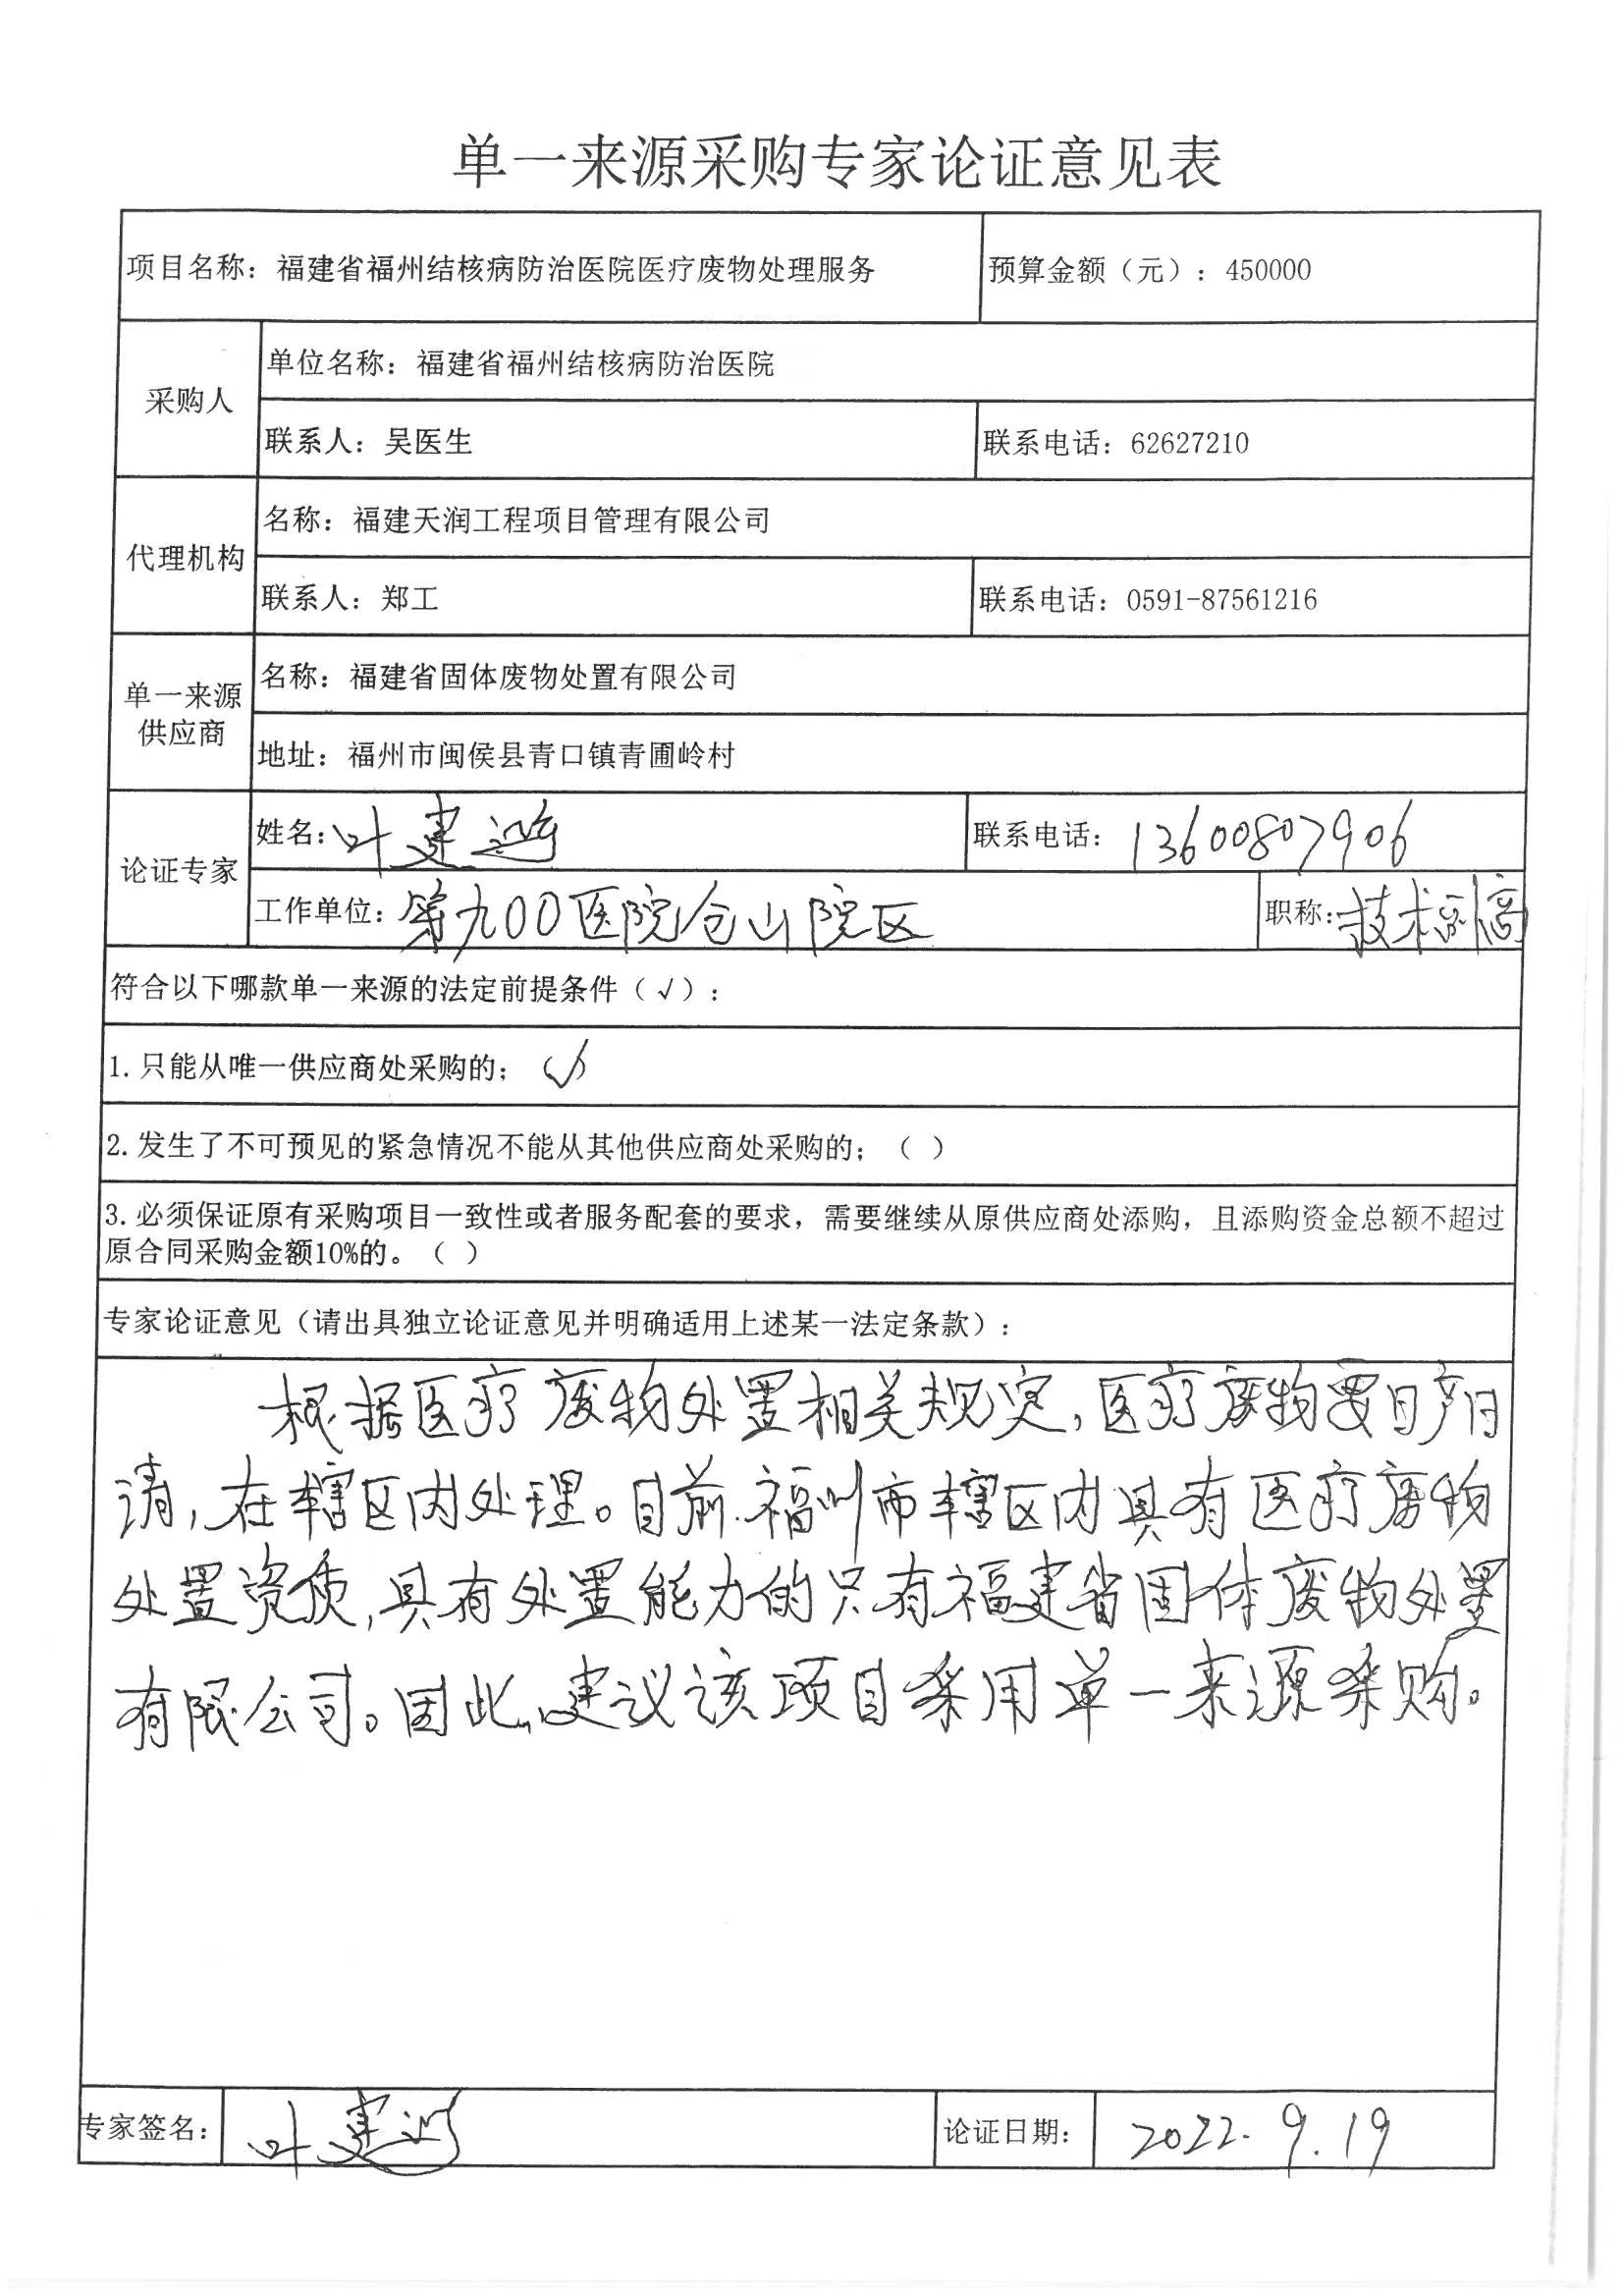 单一来源采购专家论证意见表
项目名称：福建省福州结核病防治医院医疗废物处理服务 预算金额（元）：450000
采购人
单位名称：福建省福州结核病防治医院
联系人：吴医生 联系电话：62627210
代理机构
名称：福建天润工程项目管理有限公司
联系人：郑工 联系电话：0591-87561216
单一来源
供应商
名称：福建省固体废物处置有限公司
地址：福州市闽侯县青口镇青圃岭村
论证专家
姓名：叶建 联系电话：13600807906
工作单位：第九00医院仓山院区 职称：技术副高
符合以下哪款单一来源的法定前提条件（√）：
1.只能从唯一供应商处采购的；（√）
2.发生了不可预见的紧急情况不能从其他供应商处采购的；（ ）
3.必须保证原有采购项目一致性或者服务配套的要求，需要继续从原供应商处添购，且添购资金总额不超过
原合同采购金额10%的。（ ）
专家论证意见（请出具独立论证意见并明确适用上述某一法定条款）：
根据医疗废物处置相关规定，医疗废物要日产日
清，在辖区内处理。目前福州市辖区内具有医疗废物
处置资质，具有处置能力的只有福建省固体废物处置
有限公司。因此，建议该项目采用单一来源采购。
专家签名：叶建 论证日期：2022.9.19